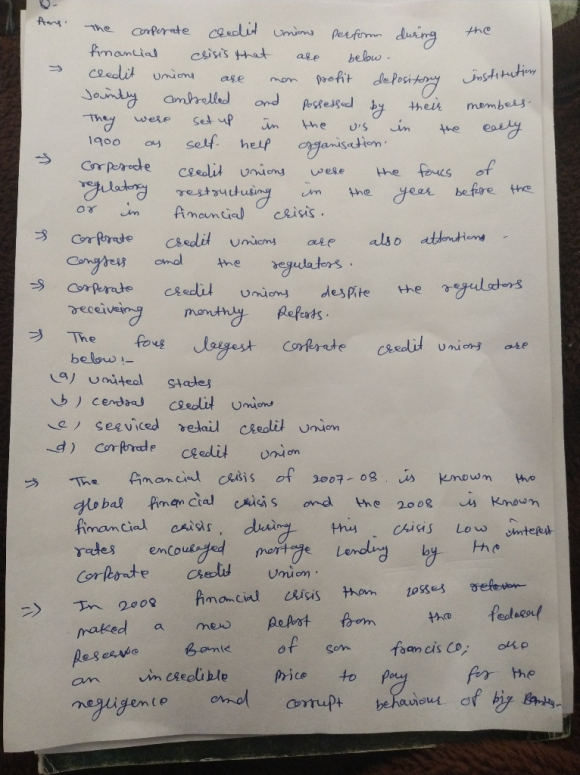 Q-
Ans. The corporate credit unions perform during the
financial crisis that are below.
⇒ credit unions are non profit depository institution
Jointly controlled and possessed by their members.
They were set up in the U.S in the early
1900 as self. help organisation.
⇒ Corporate credit unions were the focus of
regulatory restructuring in the year before the
or in financial crisis.
⇒ corporate credit unions are also attentions -
Congress and the regulators.
⇒ corporate credit unions despite the regulators
receiveing monthly Reports.
⇒ The four largest corporate credit unions are
below:-
(a) united states
(b) central credit unions
(c) serviced retail credit union
(d) corporate credit union
⇒ The financial crisis of 2007-08. is known the
global financial crisis and the 2008 is known
financial crisis, during this crisis Low interest
rates encouraged mortage Lending by the
corporate credit union.
⇒ In 2008 financial crisis than losses
maked a new Report from the federal
Reserve Bank of san francisco; also
an incredible price to pay for the
negligence and corrupt behaviour of big